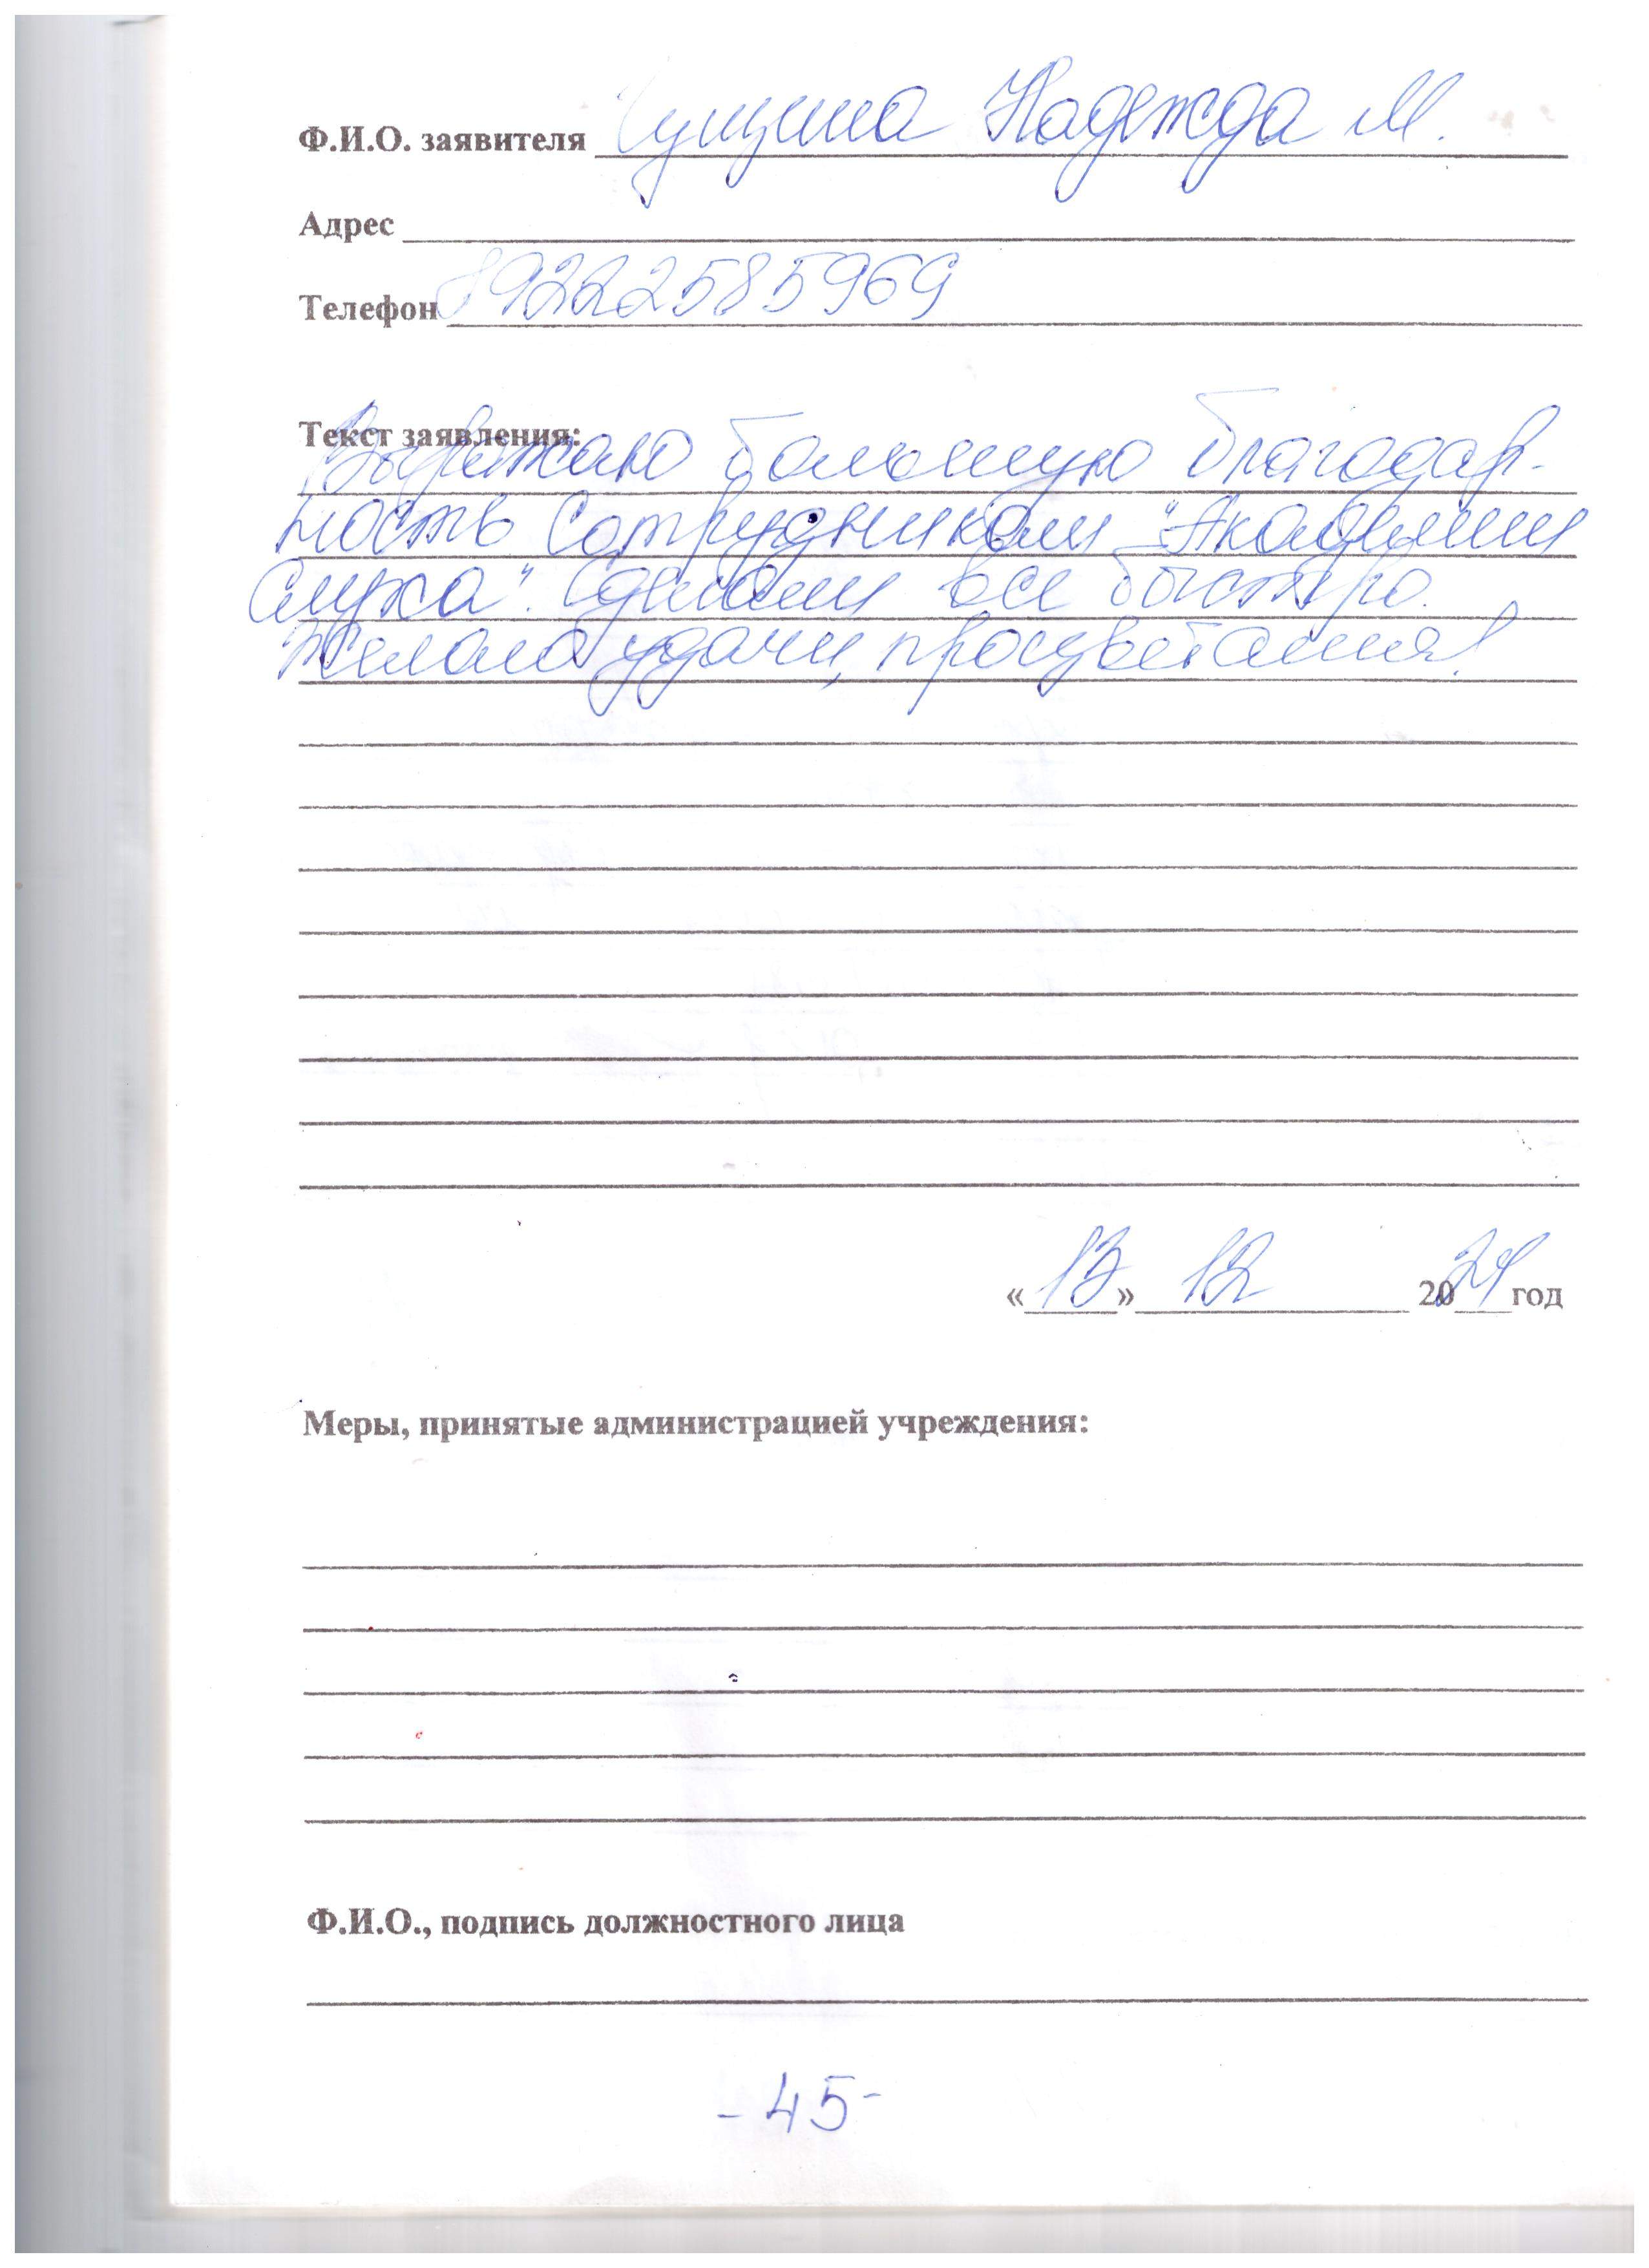 Ф.И.О. заявителя Надежда М.
Адрес
Телефон 89222585969
Текст заявления:
Выражаю большую благодар-
ность Сотрудникам "Академии
Слуха". Сделали все быстро.
Желаю удачи, процветания!
«13» 12 2024 год
Меры, принятые администрацией учреждения:
Ф.И.О., подпись должностного лица
- 45 -